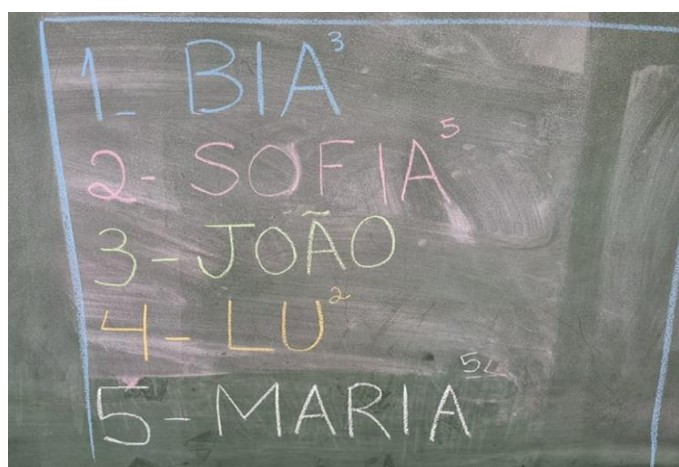 1- BIA 3
2- SOFIA 5
3- JOÃO
4- LU 2
5- MARIA 5L